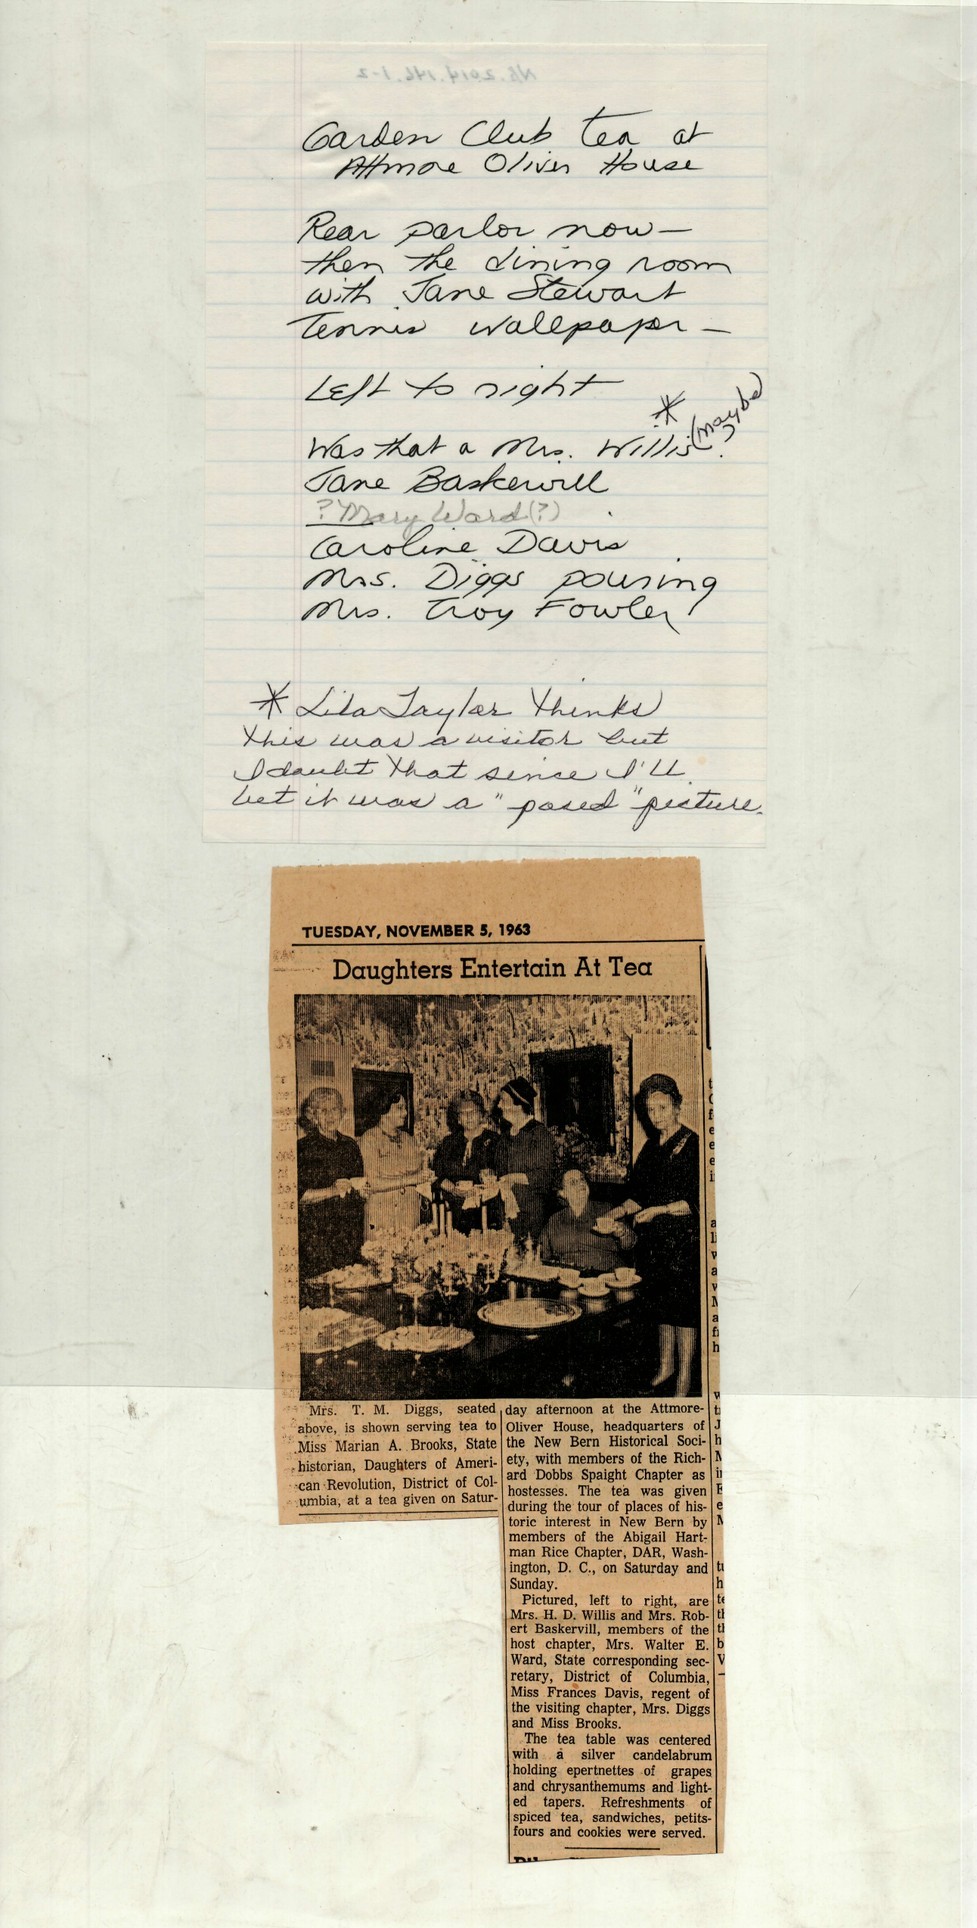 NB.2014.146.1-2
Garden Club tea at
Attmore Oliver House
Rear parlor now—
then the dining room
with Jane Stewart
Tennis wallpaper—
Left to right
*
Was that a Mrs. Willis (maybe)?
Jane Baskervill
? Mary Ward (?)
Caroline Davis
Mrs. Diggs pouring
Mrs. Troy Fowler
* Lila Taylor thinks
this was a visitor but
I doubt that since I'll
bet it was a "posed" picture.
TUESDAY, NOVEMBER 5, 1963
Daughters Entertain At Tea
Mrs. T. M. Diggs, seated
above, is shown serving tea to
Miss Marian A. Brooks, State
historian, Daughters of Ameri-
can Revolution, District of Col-
umbia, at a tea given on Satur-
day afternoon at the Attmore-
Oliver House, headquarters of
the New Bern Historical Soci-
ety, with members of the Rich-
ard Dobbs Spaight Chapter as
hostesses. The tea was given
during the tour of places of his-
toric interest in New Bern by
members of the Abigail Hart-
man Rice Chapter, DAR, Wash-
ington, D. C., on Saturday and
Sunday.
Pictured, left to right, are
Mrs. H. D. Willis and Mrs. Rob-
ert Baskervill, members of the
host chapter, Mrs. Walter E.
Ward, State corresponding sec-
retary, District of Columbia,
Miss Frances Davis, regent of
the visiting chapter, Mrs. Diggs
and Miss Brooks.
The tea table was centered
with a silver candelabrum
holding epertnettes of grapes
and chrysanthemums and light-
ed tapers. Refreshments of
spiced tea, sandwiches, petits-
fours and cookies were served.